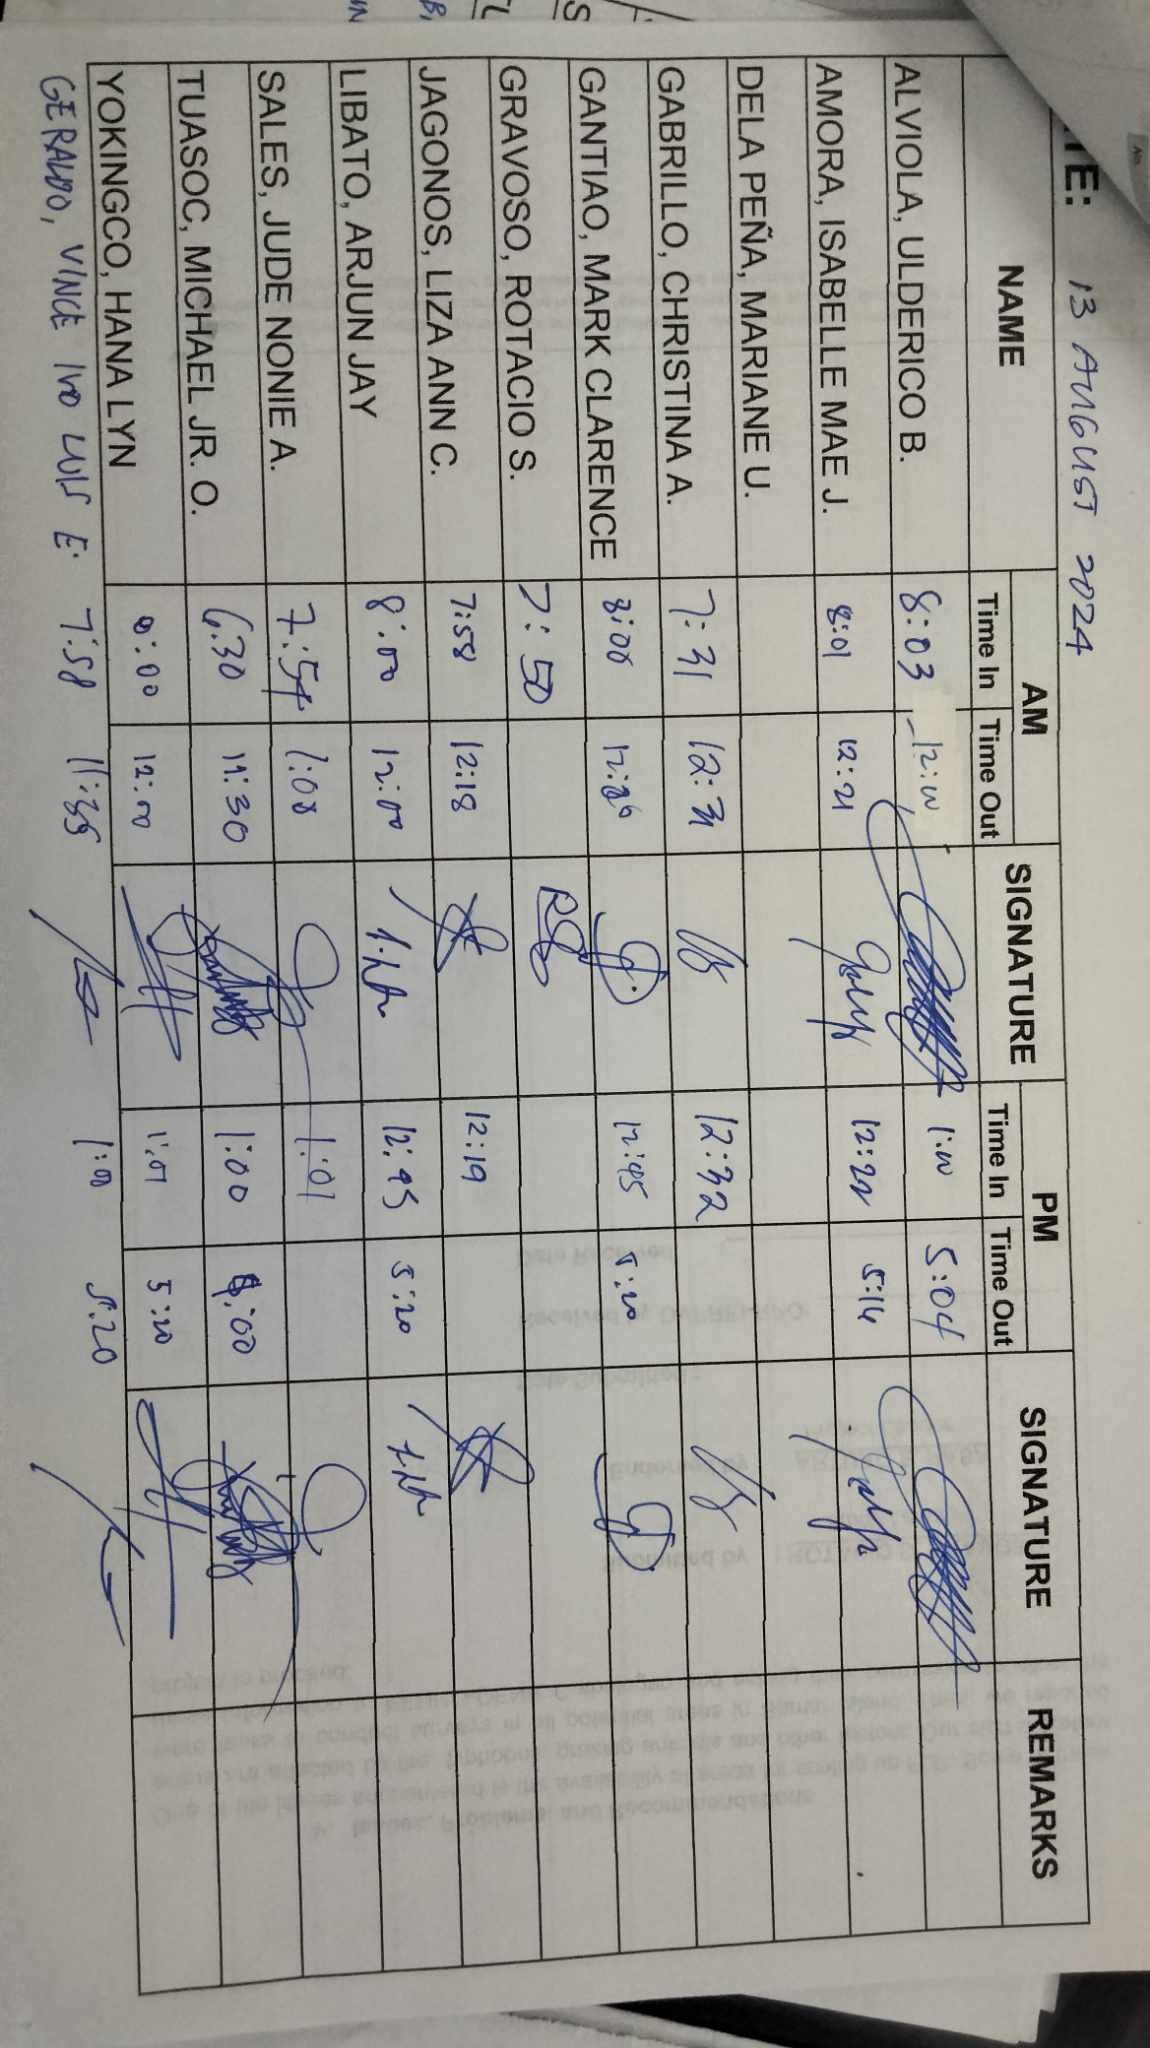 TE: 13 AUGUST 2024
NAME AM SIGNATURE PM SIGNATURE REMARKS
Time In Time Out Time In Time Out
ALVIOLA, ULDERICO B. 8:03 1:00 5:04
AMORA, ISABELLE MAE J. 8:01 12:21 12:22 5:14
DELA PEÑA, MARIANE U.
GABRILLO, CHRISTINA A. 7:31 12:31 12:32
GANTIAO, MARK CLARENCE 8:00 12:45 5:20
GRAVOSO, ROTACIO S. 7:50
JAGONOS, LIZA ANN C. 7:58 12:18 12:19
LIBATO, ARJUN JAY 8:00 12:00 12:45 5:20
SALES, JUDE NONIE A. 7:54 1:00 1:01
TUASOC, MICHAEL JR. O. 6:30 11:30 1:00
YOKINGCO, HANA LYN 8:00 12:00 1:01 5:20
GERALDO, VINCE IVO LUIS E. 7:58 11:35 1:00 5:20